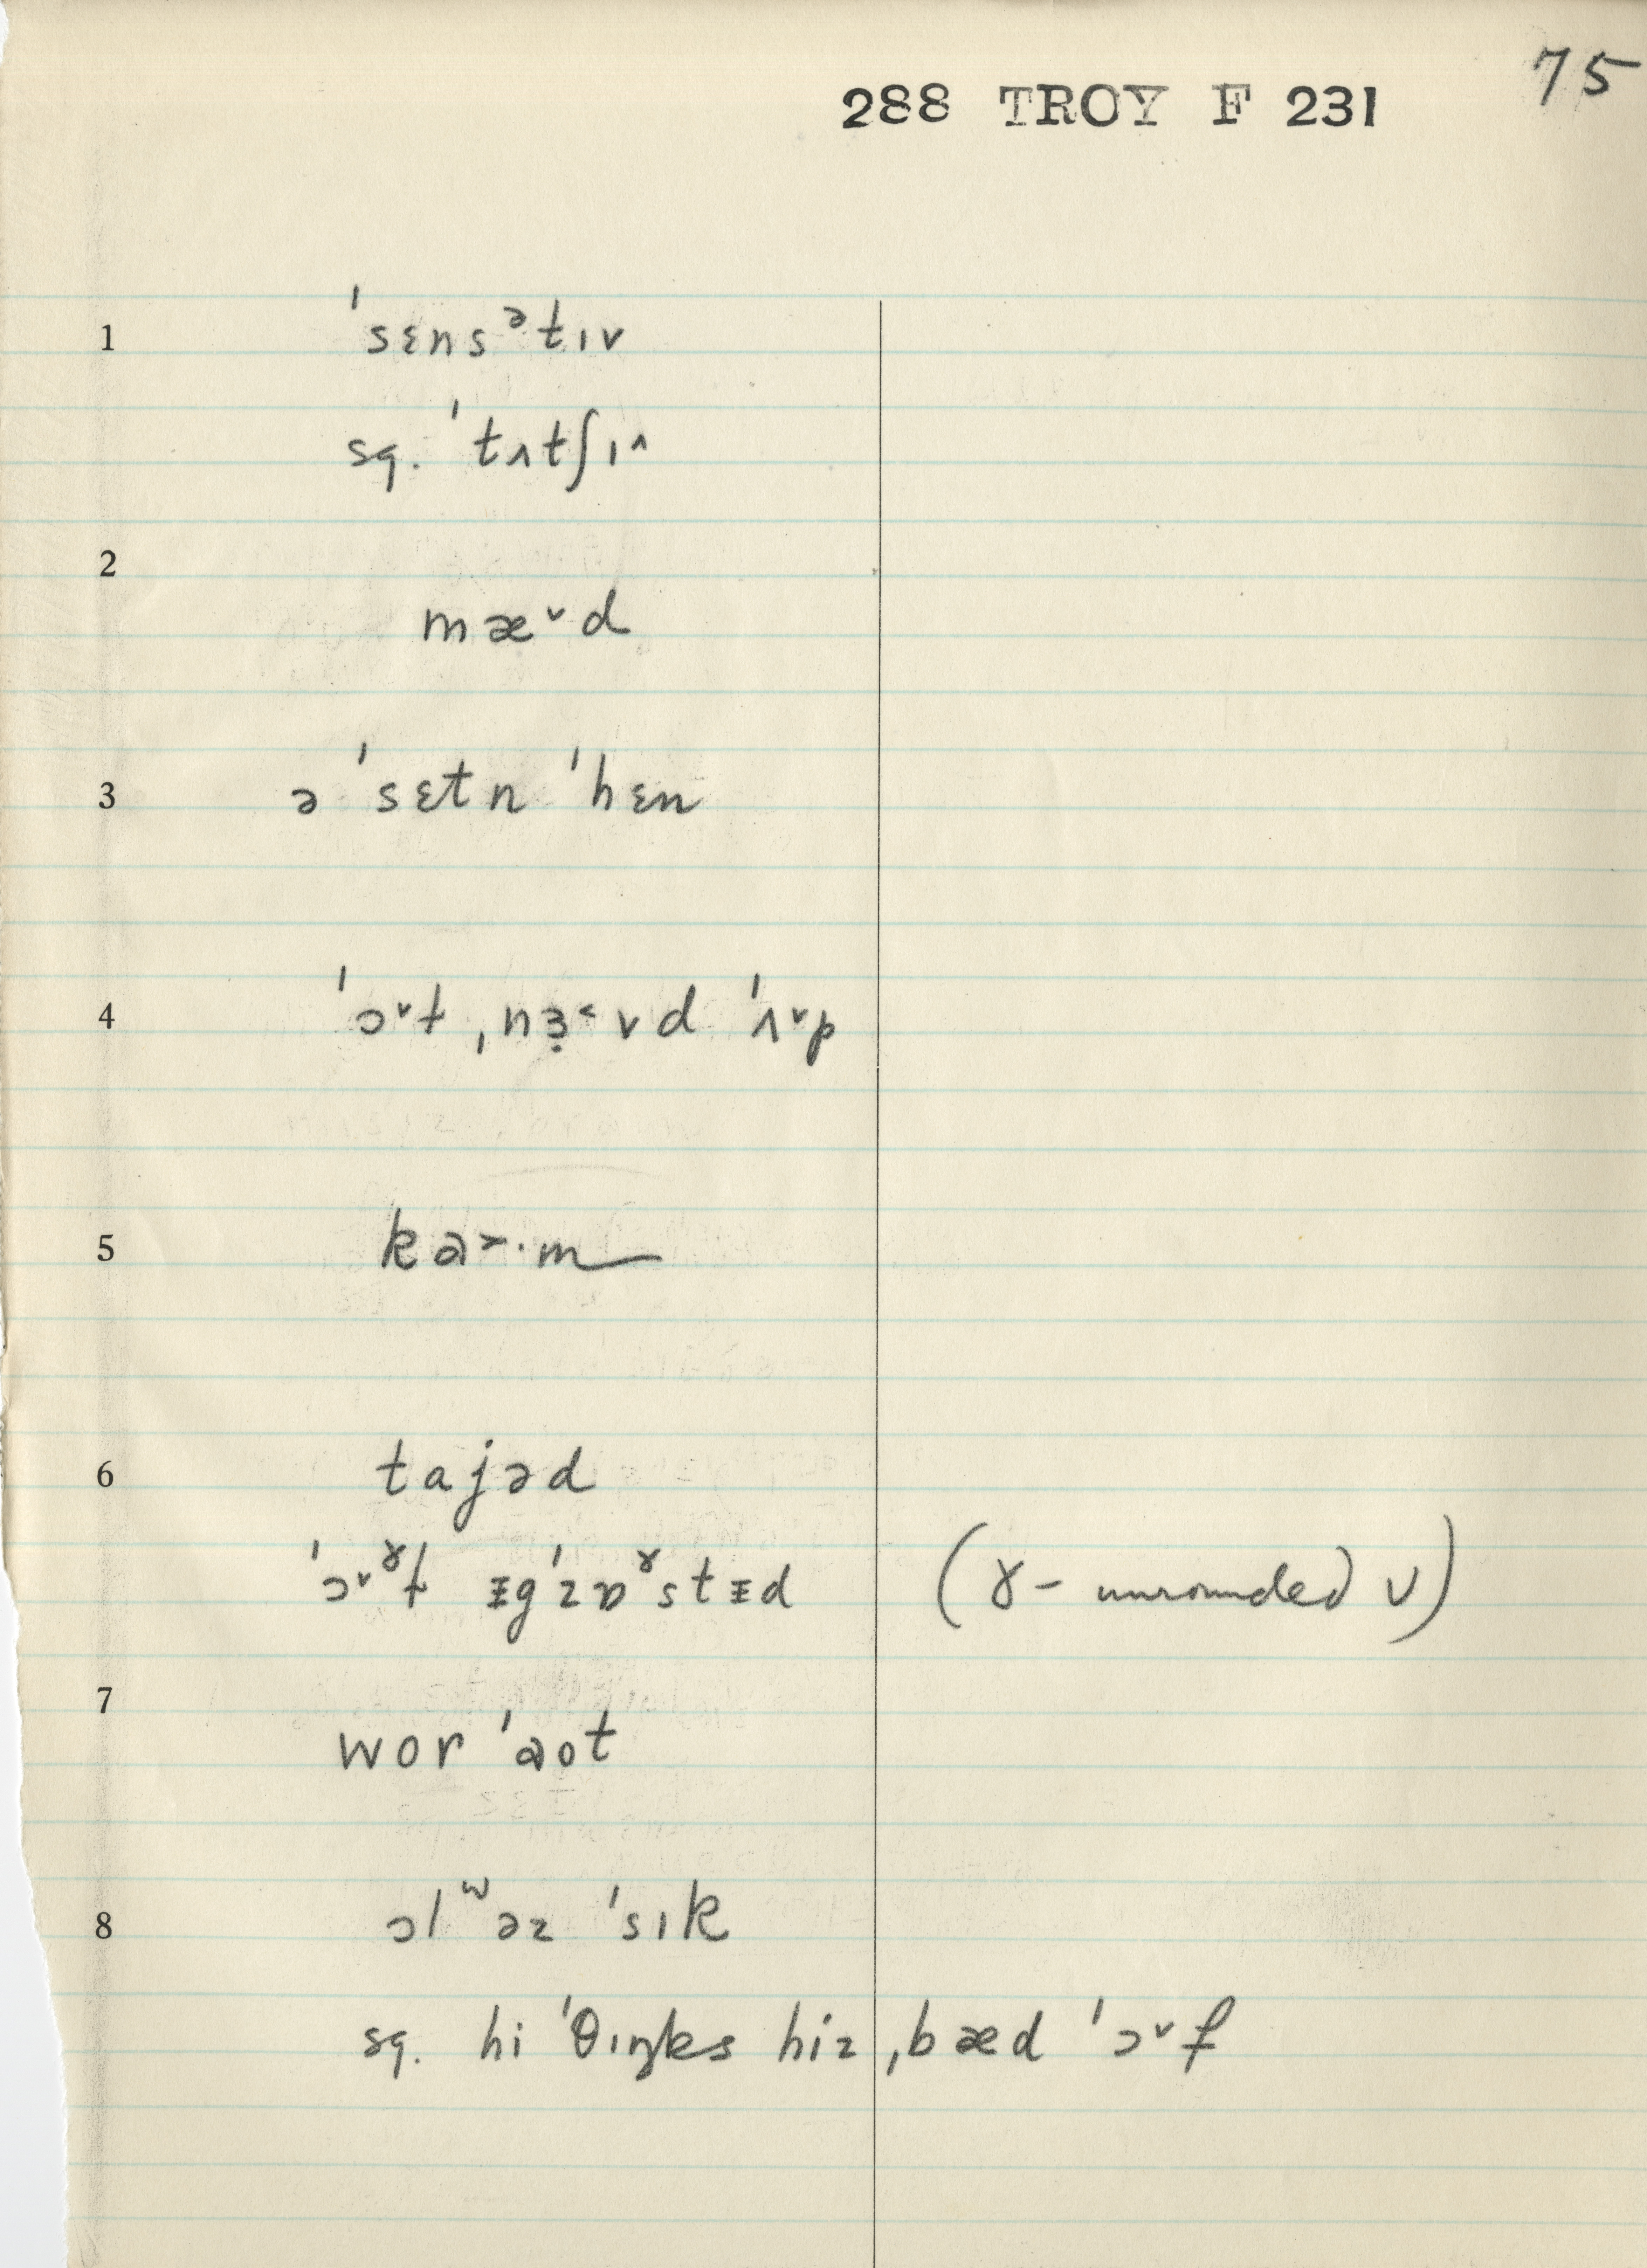 75
288 TROY F 231
1 ˈsɛnsᵊtɪv
sq. ˈtʌtʃɪ^
2
mæ˅d
3 ə ˈsɛtn ˈhɛn
4 ˈɔ˅t ˌnɜ̣˂vd ˈʌ˅p
5 ka˃·m
6 tajəd
ˈɔ˅ˠt ᵻgˈzɒˠstᵻd (ɤ- unrounded ʋ)
7
wor ˈaot
8 ɔlʷəz ˈsɪk
sq. hi ˈθɪŋks hiz ˌbæd ˈɔ˅f